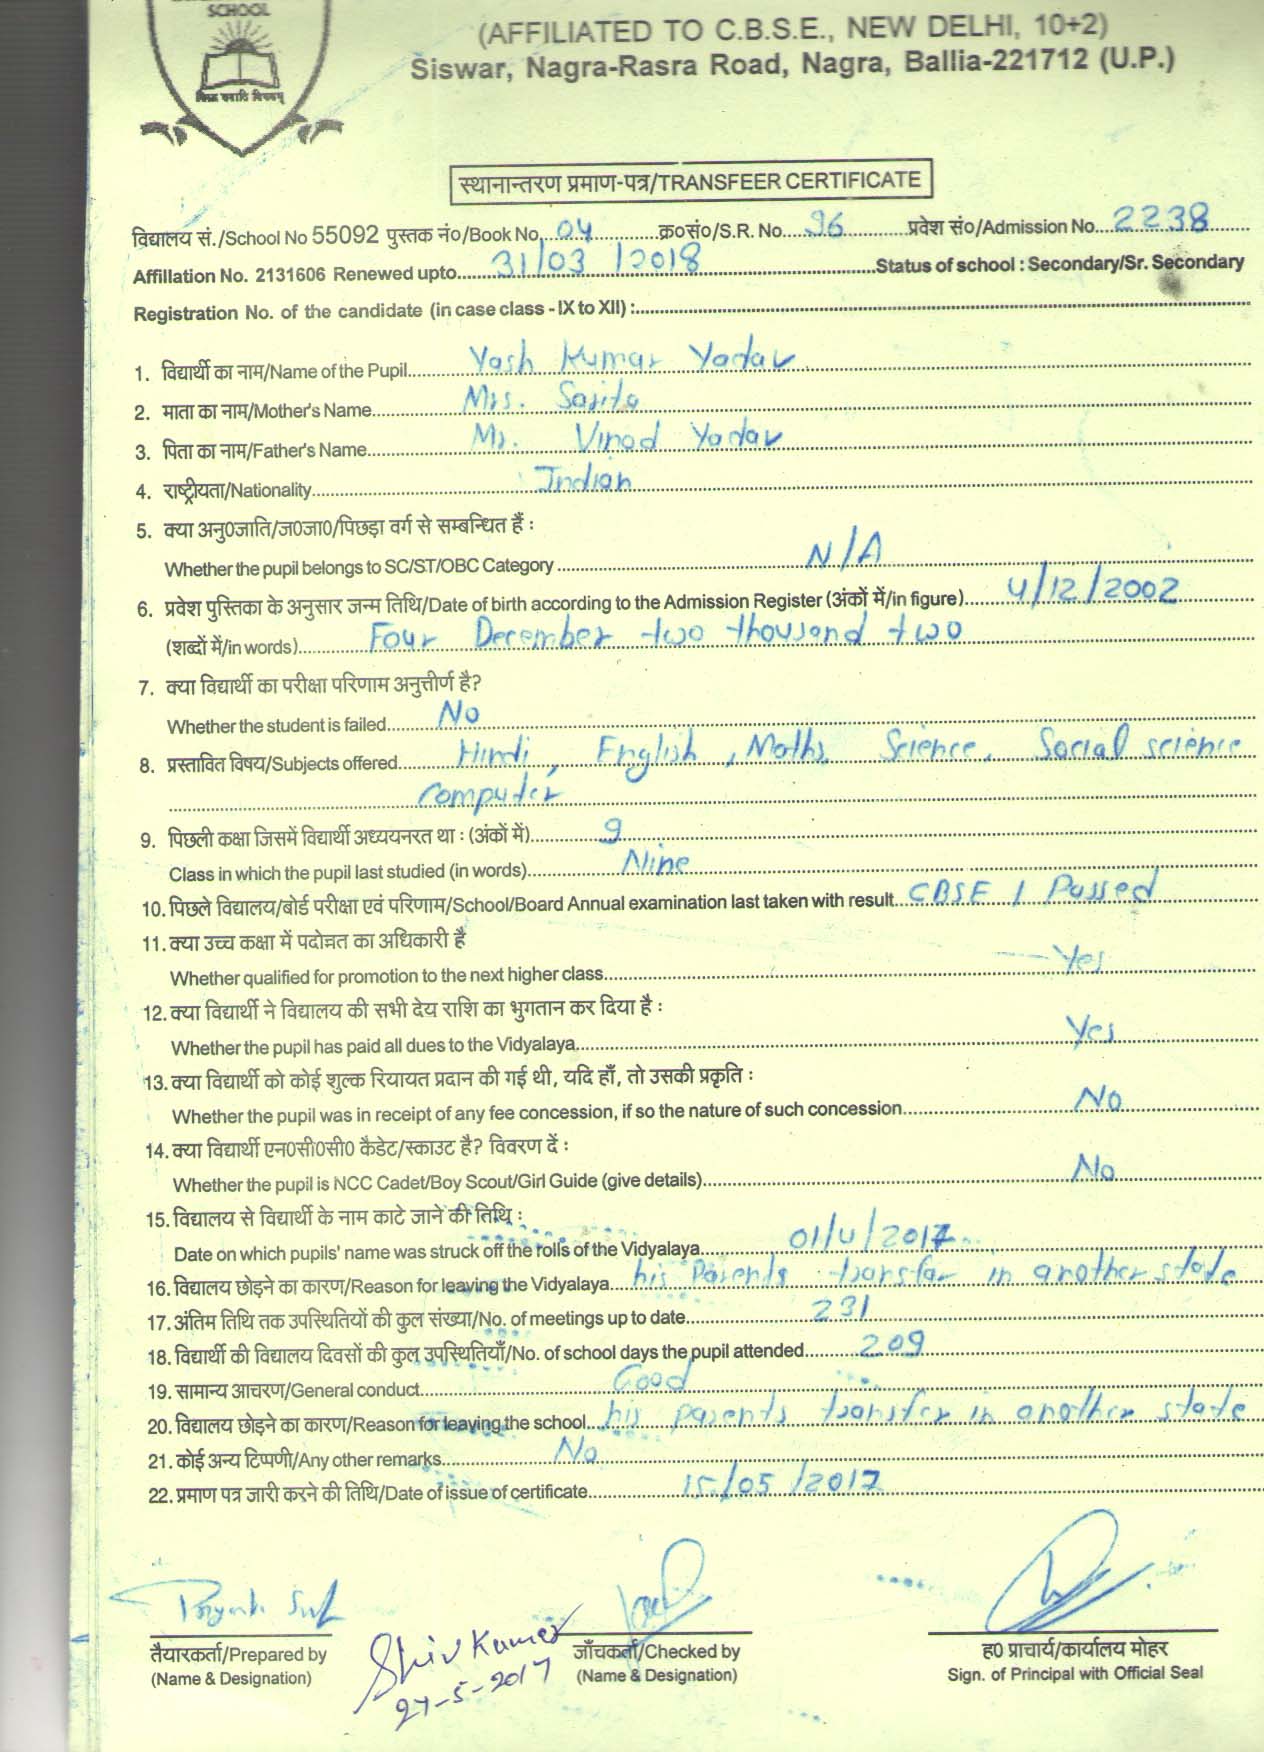 SCHOOL
(AFFILIATED TO C.B.S.E., NEW DELHI, 10+2)
Siswar, Nagra-Rasra Road, Nagra, Ballia-221712 (U.P.)
स्थानान्तरण प्रमाण-पत्र/TRANSFEER CERTIFICATE
विद्यालय सं./School No 55092 पुस्तक नं०/Book No. 04 क्र०सं०/S.R. No. 96 प्रवेश सं०/Admission No. 2238
Affillation No. 2131606 Renewed upto 31/03/2018 Status of school : Secondary/Sr. Secondary
Registration No. of the candidate (in case class - IX to XII) :
1. विद्यार्थी का नाम/Name of the Pupil Yash Kumar Yadav
2. माता का नाम/Mother's Name Mrs. Sarita
3. पिता का नाम/Father's Name Mr. Vinod Yadav
4. राष्ट्रीयता/Nationality Indian
5. क्या अनु0जाति/ज0जा0/पिछड़ा वर्ग से सम्बन्धित हैं :
Whether the pupil belongs to SC/ST/OBC Category N/A
6. प्रवेश पुस्तिका के अनुसार जन्म तिथि/Date of birth according to the Admission Register (अंकों में/in figure) 4/12/2002
(शब्दों में/in words) Four December two thousand two
7. क्या विद्यार्थी का परीक्षा परिणाम अनुत्तीर्ण है?
Whether the student is failed No
8. प्रस्तावित विषय/Subjects offered Hindi, English, Maths, Science, Social science
Computer
9. पिछली कक्षा जिसमें विद्यार्थी अध्ययनरत था : (अंकों में) 9
Class in which the pupil last studied (in words) Nine
10. पिछले विद्यालय/बोर्ड परीक्षा एवं परिणाम/School/Board Annual examination last taken with result CBSE / Passed
11. क्या उच्च कक्षा में पदोन्नत का अधिकारी है
Whether qualified for promotion to the next higher class Yes
12. क्या विद्यार्थी ने विद्यालय की सभी देय राशि का भुगतान कर दिया है :
Whether the pupil has paid all dues to the Vidyalaya Yes
13. क्या विद्यार्थी को कोई शुल्क रियायत प्रदान की गई थी, यदि हाँ, तो उसकी प्रकृति :
Whether the pupil was in receipt of any fee concession, if so the nature of such concession No
14. क्या विद्यार्थी एन0सी0सी0 कैडेट/स्काउट है? विवरण दें :
Whether the pupil is NCC Cadet/Boy Scout/Girl Guide (give details) No
15. विद्यालय से विद्यार्थी के नाम काटे जाने की तिथि :
Date on which pupils' name was struck off the rolls of the Vidyalaya 01/4/2017
16. विद्यालय छोड़ने का कारण/Reason for leaving the Vidyalaya his Parents transfar in another state
17. अंतिम तिथि तक उपस्थितियों की कुल संख्या/No. of meetings up to date 231
18. विद्यार्थी की विद्यालय दिवसों की कुल उपस्थितियाँ/No. of school days the pupil attended 209
19. सामान्य आचरण/General conduct Good
20. विद्यालय छोड़ने का कारण/Reason for leaving the school his parents transfer in another state
21. कोई अन्य टिप्पणी/Any other remarks No
22. प्रमाण पत्र जारी करने की तिथि/Date of issue of certificate 15/05/2017
तैयारकर्ता/Prepared by
(Name & Designation)
Shiv Kumar
27-5-2017
जाँचकर्ता/Checked by
(Name & Designation)
ह0 प्राचार्य/कार्यालय मोहर
Sign. of Principal with Official Seal